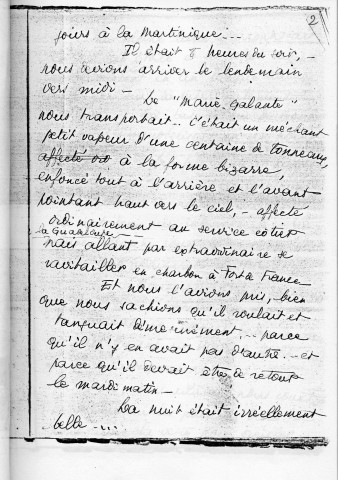 2
jours à la Martinique...
Il était 8 heures du soir, -
nous devions arriver le lendemain
vers midi -
Le "Marie-galante"
nous transportait.. C'était un méchant
petit vapeur d'une centaine de tonneaux,
affecté à la forme bizarre,
enfoncé tout à l'arrière et l'avant
pointant haut vers le ciel, - affecté
ordinairement au service côtier
la Guadeloupe
mais allant par extraordinaire se
ravitailler en charbon à Fort de France -
Et nous l'avions pris, bien
que nous sachions qu'il roulait et
tanguait démesurément, .. parce
qu'il n'y en avait pas d'autre. - et
parce qu'il devait être de retour
le mardi matin -
La nuit était irréellement
belle -...